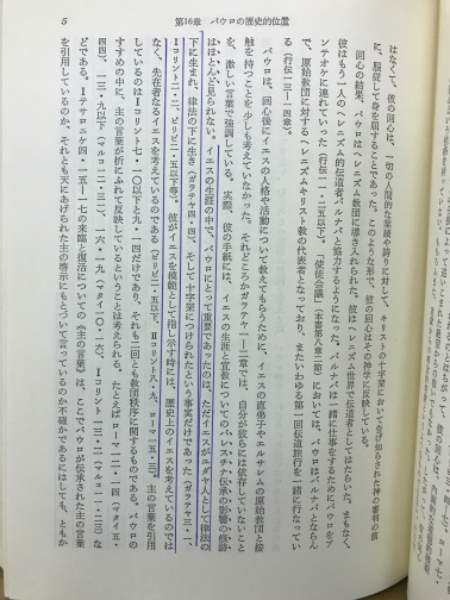 5
第16章 パウロの歴史的位置
はなくて、彼の回心は、一切の人間的な業績や誇りに対して、キリストの十字架において告げ知らされた神の審判の前
に、服従して身を屈することであった。このような形で、彼の回心はその神学に反映している。
回心の結果、パウロはヘレニズム教団に導き入れられた。彼はヘレニズム世界で伝道者としてはたらいた。まもなく、
彼はもう一人のヘレニズム的伝道者バルナバと協力するようになった。バルナバは一緒に仕事をするためにパウロをア
ンテオケに連れていった(行伝一一・二五以下)。「使徒会議」(本書第八章二節)においては、パウロはバルナバとならん
で、原始教団に対するヘレニズムキリスト教の代表者となっており、またいわゆる第一回伝道旅行を一緒に行なってい
る(行伝一三―一四章)。
パウロは、回心後にイエスの人格や活動について教えてもらうために、イエスの直弟子やエルサレムの原始教団と接
触を持つことを少しも考えていなかった。それどころかガラテヤ一―二章では、自分が彼らには依存していないこと
を、激しい言葉で強調している。実際、彼の手紙には、イエスの生涯と宣教についてのパレスチナ伝承の影響の痕跡
はほとんど見られない。イエスの生涯の中で、パウロにとって重要であったのは、ただイエスがユダヤ人として律法の
下に生まれ、律法の下に生き(ガラテヤ四・四)、そして十字架につけられたという事実だけであった(ガラテヤ三・一、
Ⅰコリント二・二、ピリピ二・五以下等)。彼がイエスを模範として指し示す時には、歴史上のイエスを考えているのでは
なく、先在者なるイエスを考えているのである(ピリピ二・五以下、Ⅱコリント八・九、ローマ一五・三)。主の言葉を引用
しているのはⅠコリント七・一〇以下と九・一四だけであり、それも二回とも教団秩序に関するものである。パウロの
すすめの中に、主の言葉が折にふれて反映しているということは考えられる。たとえばローマ一二・一四(マタイ五・
四四)、一三・九以下(マルコ一二・三一)、一六・一九(マタイ一〇・一六)、Ⅰコリント一三・二(マルコ一一・二三)な
どである。Ⅰテサロニケ四・一五―一七の来臨と復活についての《主の言葉》は、ここでパウロが伝承された主の言葉
を引用しているのか、それとも天にあげられた主の啓示にもとづいて言っているのか不確かではあるにしても、ともか